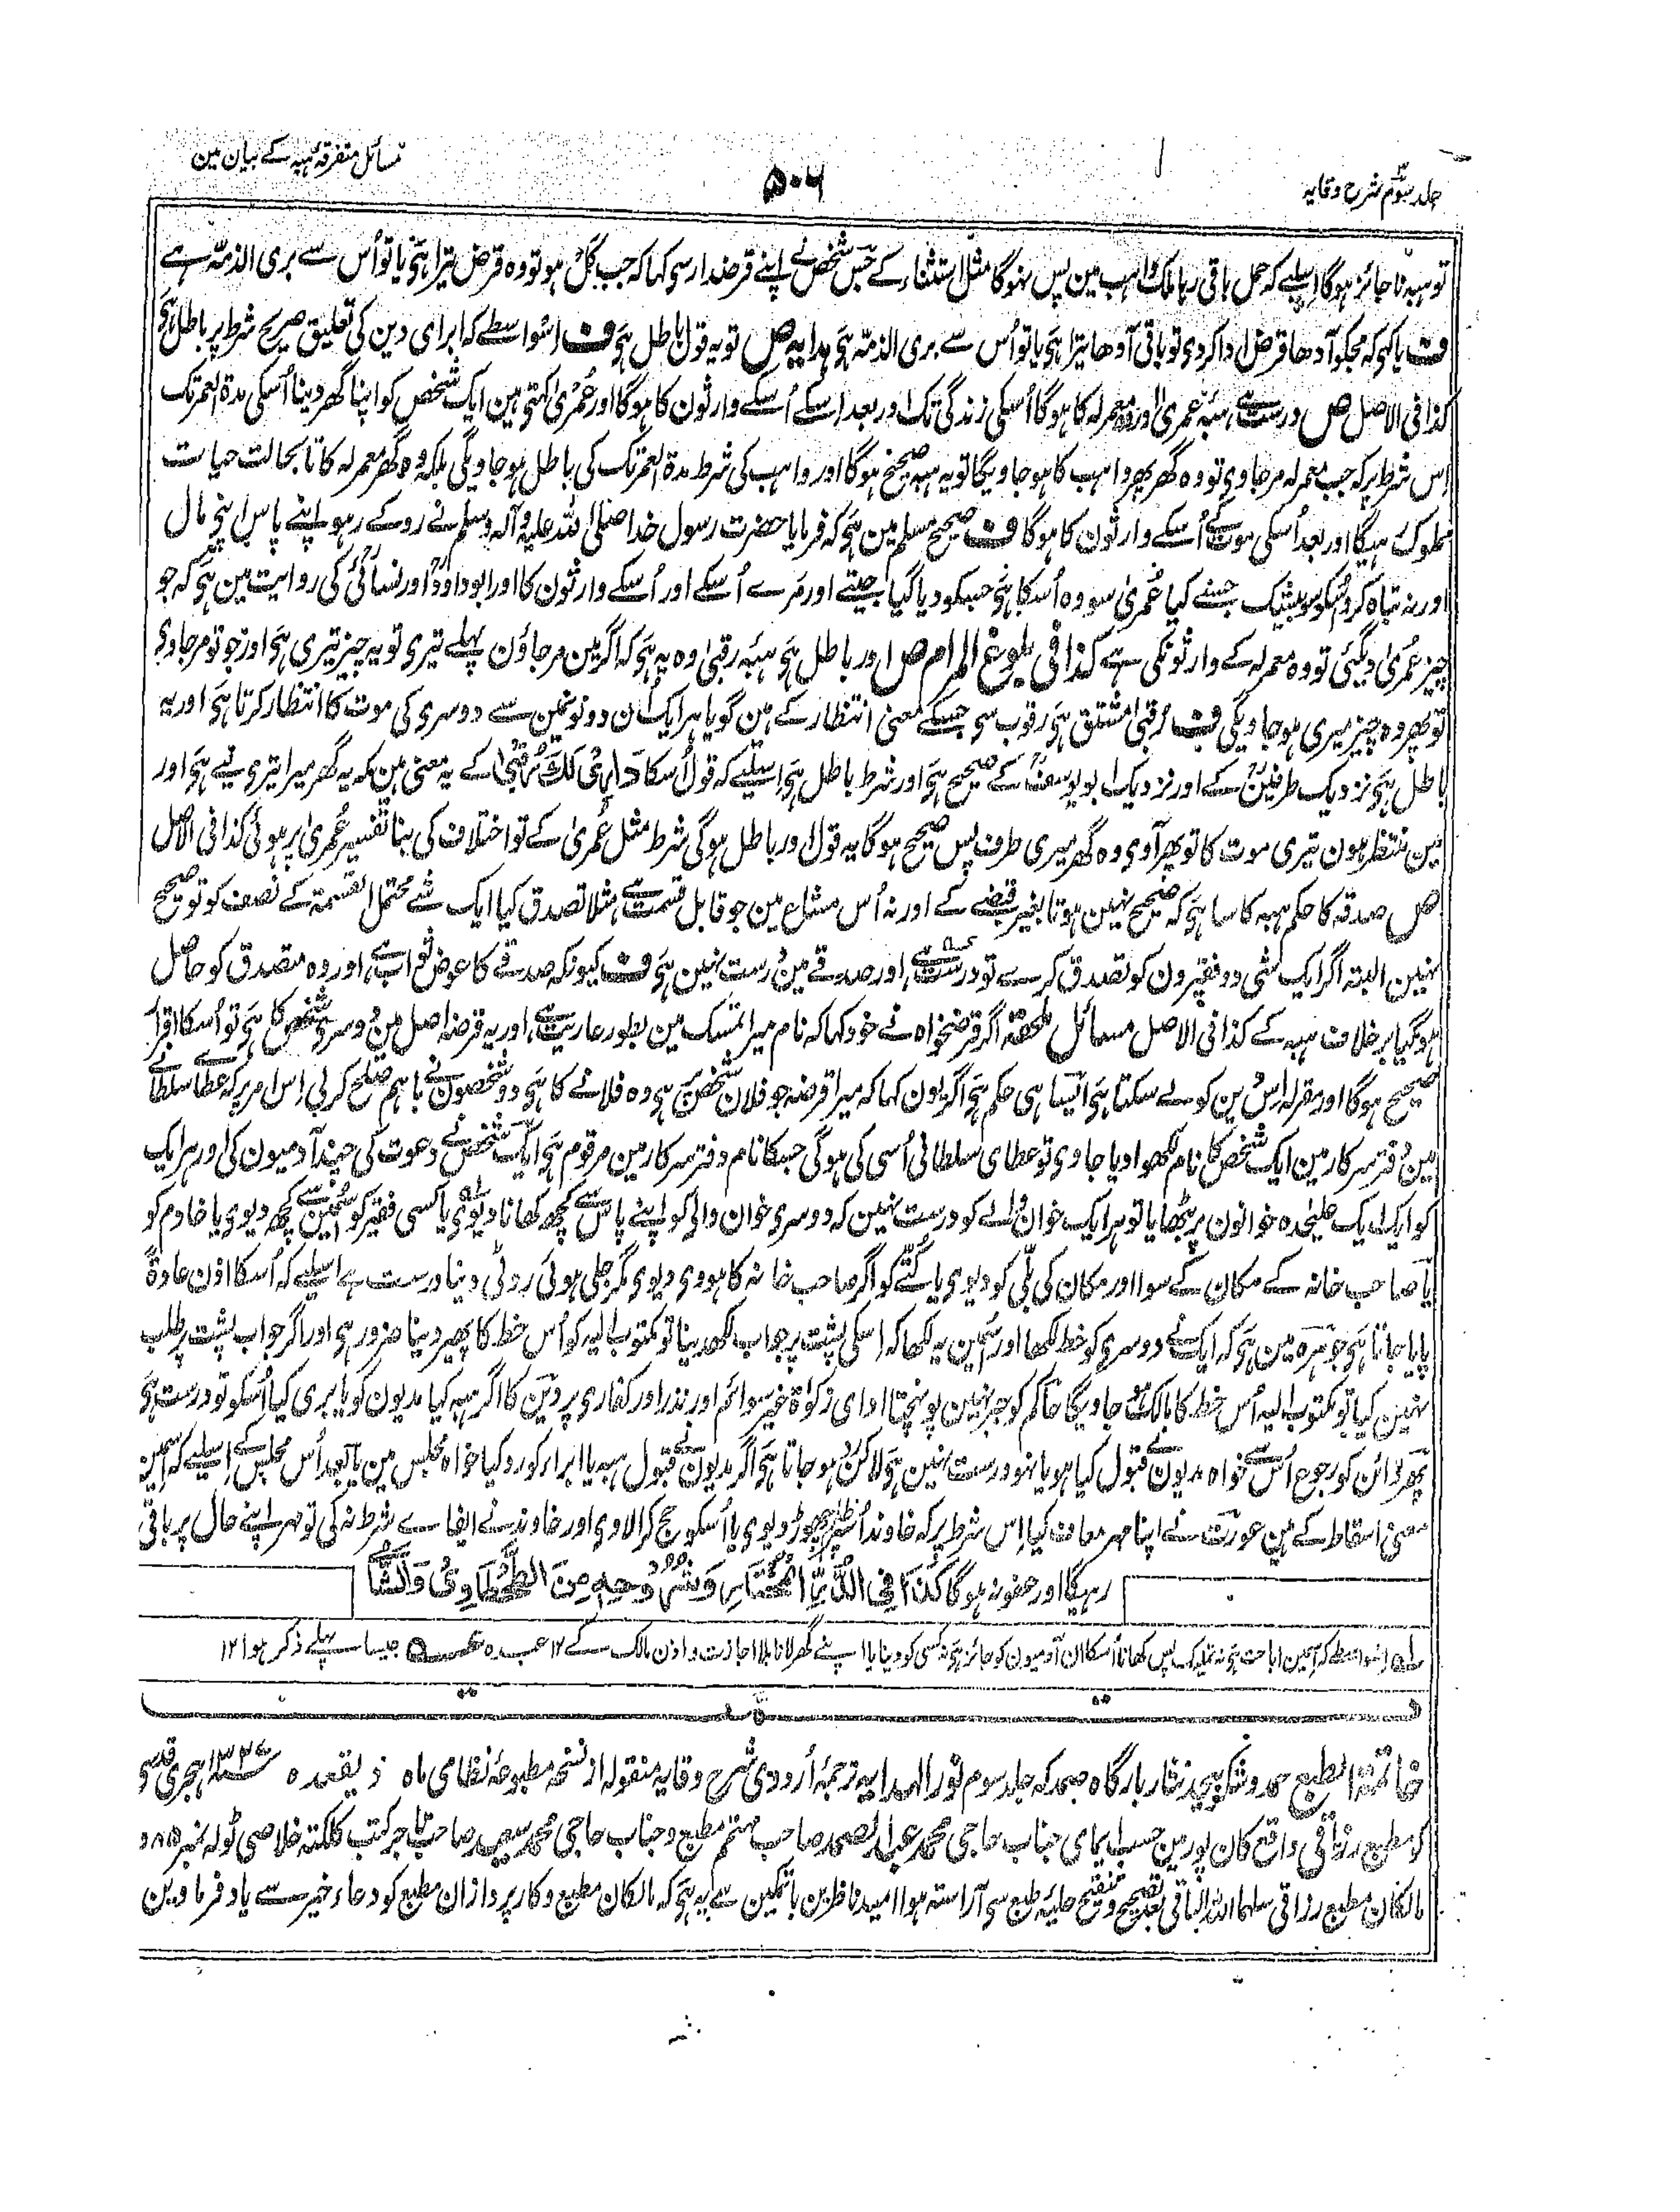 جلد سوم شرح وقایہ
۵۰۶
مسائل متفرقہ ہبہ کے بیان مین
تو ہبہ ناجائز ہوگا اسلیے کہ حمل باقی رہا ملک واہب مین پس نہوگا مثل استثناء کے جس شخص نے اپنے قرضدار سی کہا کہ جب کل ہو تو وہ قرض تیرا ہی یا تو اُس سے بری الذمہ ہے
ف یا کہی کہ مجکو آدھا قرض ادا کر دی تو باقی آدھا تیرا ہی یا تو اُس سے بری الذمہ ہی ہدایہ ص تو یہ قول باطل ہی ف اسواسطے کہ ابرای دین کی تعلیق صریح شرط پر باطل ہی
کذا فی الاصل ص درست ہے ہبۂ عمری اور وہ معمرلہ کا ہوگا اُسکی زندگی تک اور بعد اسکے اُسکے وارثون کا ہوگا اور عُمریٰ کہتی ہین ایک شخص کو اپنا گھر دینا اُسکی مدة العمر تک
اِس شرط پر کہ جب معمرلہ مرجاوی تو وہ گھر پھر واہب کا ہو جاویگا تو یہ ہبہ صحیح ہوگا اور واہب کی شرط مدة العمر تک کی باطل ہو جاویگی بلکہ وہ گھر معمرلہ کا تا بحالت حیات
مملوک رہیگا اور بعد اُسکی موت کے اُسکے وارثون کا ہوگا ف صحیح مسلم مین ہی کہ فرمایا حضرت رسول خدا صلی اللہ علیہ وآلہ وسلم نے روکے رہو اپنے پاس اپنی مال
اور نہ تباہ کرو اُسکو سو بیشک جسنے کیا عُمریٰ سو وہ اُسکا ہی جسکو دیا گیا جیتے اور مرے اُسکے اور اُسکے وارثون کا اور ابوداؤد اور نسائی کی روایت مین ہی کہ جو
چیز عمریٰ دیگئی تو وہ معمرلہ کے وارثونکی ہے کذا فی بلوغ المرام ص اور باطل ہی ہبۂ رقبیٰ وہ یہ ہی کہ اگر مین مرجاؤن پہلے تیری تو یہ چیز تیری ہی اور جو تو مرجاوی
تو پھر وہ چیز میری ہو جاویگی ف رقبیٰ مشتق ہی رقوب سی جسکے معنی انتظار کے ہین گویا ہر ایک اُن دونونمین سے دوسری کی موت کا انتظار کرتا ہی اور یہ
باطل ہی نزدیک طرفین کے اور نزدیک ابو یوسف کے صحیح ہی اور شرط باطل ہی اسلیے کہ قول اُسکا دَارِیْ لَكَ رُقْبٰی کے یہ معنی ہین کہ یہ گھر میرا تیری لیے ہی اور
مین منتظر ہون تیری موت کا تو پھر آوی وہ گھر میری طرف پس صحیح ہوگا یہ قول اور باطل ہوگی شرط مثل عُمریٰ کے تو اختلاف کی بنا تفسیر عُمریٰ پر ہوئی کذا فی الاصل
ص صدقہ کا حکم ہبہ کا سا ہی کہ صحیح نہین ہوتا بغیر قبضے کے اور نہ اُس مشاع مین جو قابل قسمت ہے مثلا تصدق کیا ایک شے محتمل القسمة کے نصف کو تو صحیح
نہین البتہ اگر ایک شی دو فقیرون کو تصدق کرے تو درست ہے اور صدقے مین رست نہین ہی ف کیونکہ صدقے کا عوض ثواب ہے اور وہ متصدق کو حاصل
ہوگیا برخلاف ہبہ کے کذا فی الاصل مسائل ملحقہ اگر قرضخواہ نے خود کہا کہ نام میرا تمسک مین بطور عاریت ہے اور یہ قرضہ اصل مین دوسری شخص کا ہی تو اُسکا اقرار
صحیح ہوگا اور مقرلہ اِس دین کو لے سکتا ہی ایسا ہی حکم ہی اگر یون کہا کہ میرا قرضہ جو فلان شخص پر ہی وہ فلانے کا ہی دو شخصون نے باہم صلح کر لی اِس امر پر کہ عطاے سلطانے
مین دفتر سرکار مین ایک شخص کا نام لکھوا دیا جاوی تو عطای سلطانی اُسی کی ہوگی جسکا نام دفتر سرکار مین مرقوم ہی ایک شخص نے دعوت کی چند آدمیون کی اور ہر ایک
کو ایک ایک علیٰحدہ خوانون پر بٹھایا تو ہر ایک خوان والے کو درست نہین کہ دوسری خوان والی کو اپنے پاس سے کچھ کھانا دیوی یا کسی فقیر کو اُسمین سے کچھ دیوی یا خادم کو
یا صاحب خانہ کے مکان کے سوا اور مکان کی بلّی کو دیوی یا کُتّے کو اگر صاحب خانہ کا ہووی دیوی مگر جلی ہوئی روٹی دینا درست ہے اسلیے کہ اُسکا اذن عادةً
پایا جاتا ہی جوہرہ مین ہی کہ ایک نے دوسری کو خط لکھا اور اُسمین یہ لکھا کہ اِسکی پشت پر جواب لکھدینا تو مکتوب الیہ کو اُس خط کا پھیر دینا ضرور ہی اور اگر جواب پشت پر طلب
نہین کیا تو مکتوب الیہ اُس خط کا مالک ہو جاویگا حاکم کو جبر نہین پونہچتا ادای زکوٰة غیر سوائم اور نذر اور کفاری پر دین کا اگر ہبہ کیا مدیون کو یا بری کیا اُسکو تو درست ہی
پھر دائن کو رجوع اُس سے خواہ مدیون نے قبول کیا ہو یا نہو درست نہین ہی لاکن رد ہو جاتا ہی اگر مدیون نے قبول ہبہ یا ابراء کو رد کیا خواہ مجلس مین یا بعد اُس مجلس کے اسلیے کہ اسمین
معنی اسقاط کے ہین عورت نے اپنا مہر معاف کیا اِس شرط پر کہ خاوند اُسپر چھوڑ دیوی یا اُسکو حج کرا لاوی اور خاوند نے ایفاے شرط نہ کی تو مہر اپنے حال پر باقی
رہیگا اور عفو نہ ہوگا کَذَا فِی الدُّرِّ الْمُخْتَارِ وَشُرُوْحِهٖ مِنَ الطَّحْطَاوِیْ وَالشَّا
اسواسطے کہ اسمین اباحت ہی نہ تملیک پس کھانا اُسکا اُن آدمیون کو جائز ہی نہ کسی کو دینا یا اپنے گھر لانا بلا اجازت و اذن مالک کے ۱۲ عبدہ جیسا پہلے ذکر ہوا ۱۲
خاتمة الطبع حمد و شکر بیحد نثار بارگاہ صمد کہ جلد سوم نور الہدایہ ترجمۂ اُردوی شرح وقایہ منقولہ از نسخہ مطبوعۂ نظامی ماہ ذیقعدہ ہجری قدسی
کو مطبع رزاقی واقع کان پور مین حسب ایمای جناب حاجی محمد عبد الصمد صاحب مہتمم مطبع و جناب حاجی محمد سعید صاحب تاجر کتب کلکتہ خلاصی ٹولہ نمبر ۸۵ و
مالکان مطبع رزاقی سلمہا اللہ الباقی بعد تصحیح و تنقیح حلیۂ طبع سی آراستہ ہوا امید ناظرین باتمکین سے یہ ہی کہ مالکان مطبع و کارپردازان مطبع کو دعاء خیر سے یاد فرماوین